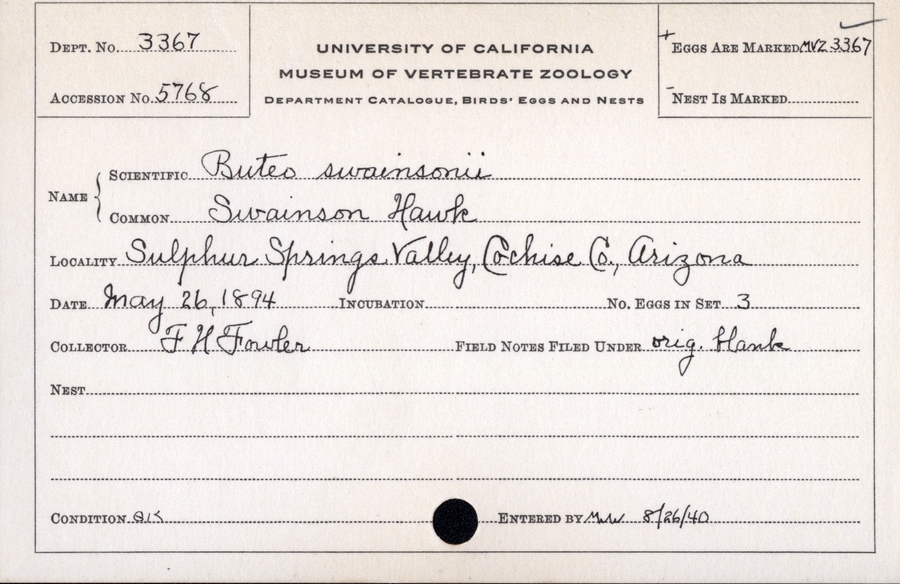 DEPT. NO. 3367
UNIVERSITY OF CALIFORNIA
MUSEUM OF VERTEBRATE ZOOLOGY
DEPARTMENT CATALOGUE, BIRDS' EGGS AND NESTS
+ EGGS ARE MARKED MVZ 3367
ACCESSION NO. 5768
- NEST IS MARKED
NAME
SCIENTIFIC Buteo swainsonii
COMMON Swainson Hawk
LOCALITY Sulphur Springs Valley, Cochise Co., Arizona
DATE May 26, 1894 INCUBATION NO. EGGS IN SET 3
COLLECTOR F H Fowler FIELD NOTES FILED UNDER orig. blank
NEST
CONDITION OK ENTERED BY MW 8/26/40